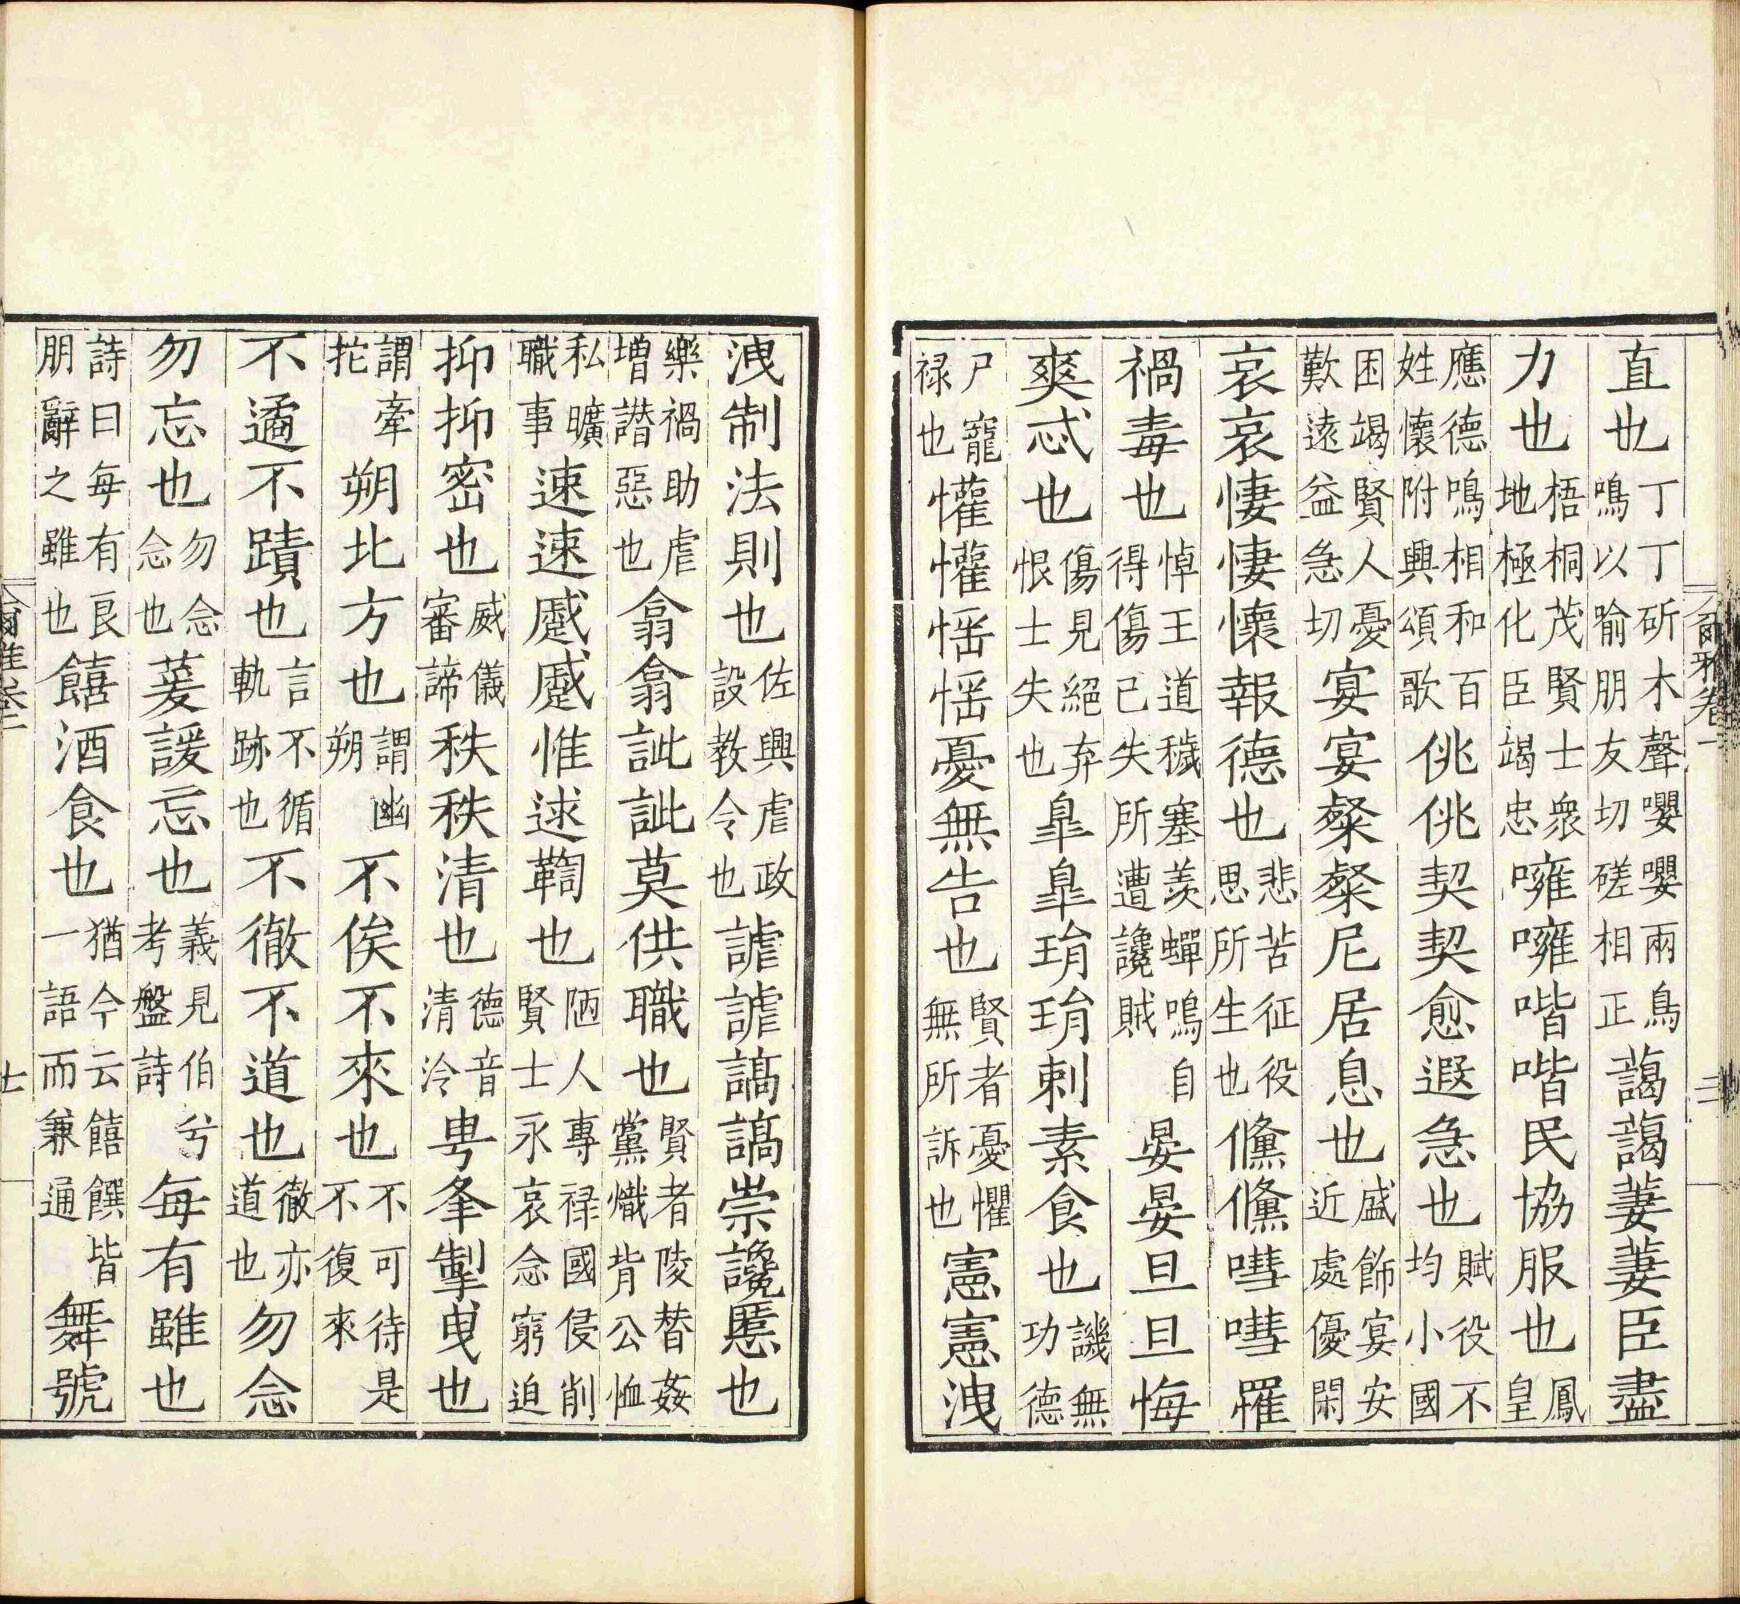 直也丁丁斫木聲嚶嚶兩鳥鳴以喻朋友切磋相正藹藹萋萋臣盡
力也梧桐茂賢士衆地極化臣竭忠噰噰喈喈民協服也鳳皇
應德鳴相和百姓懷附興頌歌佻佻契契愈遐急也賦役不均小國
困竭賢人憂歎遠益急切宴宴粲粲尼居息也盛飾宴安近處優閑
哀哀悽悽懷報德也悲苦征役思所生也儵儵嘒嘒罹
禍毒也悼王道穢塞羨蟬鳴自得傷己失所遭讒賊晏晏旦旦悔
爽忒也傷見絕弃恨士失也皐皐琄琄刺素食也譏無功德
尸寵禄也懽懽愮愮憂無告也賢者憂懼無所訴也憲憲洩
洩制法則也佐興虐政設教令也謔謔謞謞崇讒慝也
樂禍助虐增譖惡也翕翕訿訿莫供職也賢者陵替姦黨熾背公恤
私曠職事速速蹙蹙惟逑鞫也陋人專禄國侵削賢士永哀念窮迫
抑抑密也威儀審諦秩秩清也德音清泠甹夆掣曳也
謂牽拕朔北方也謂幽朔不俟不來也不可待是不復來
不遹不蹟也言不循軌跡也不徹不道也徹亦道也勿念
勿忘也勿念念也萲諼忘也義見伯兮考盤詩每有雖也
詩曰每有良朋辭之雖也饎酒食也猶今云饎饌皆一語而兼通舞號